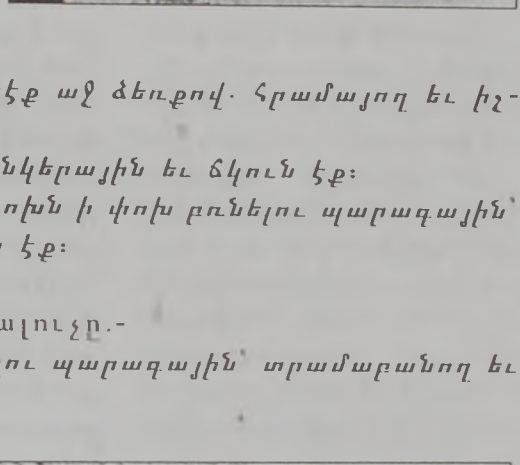 էք աջ ձեռքով. Հրամայող եւ իշ-
նկերային եւ ճկուն էք։
ոխն ի փոխ բռնելու պարագային՝
էք։
ալուչը.-
ու պարագային՝ տրամաբանող եւ